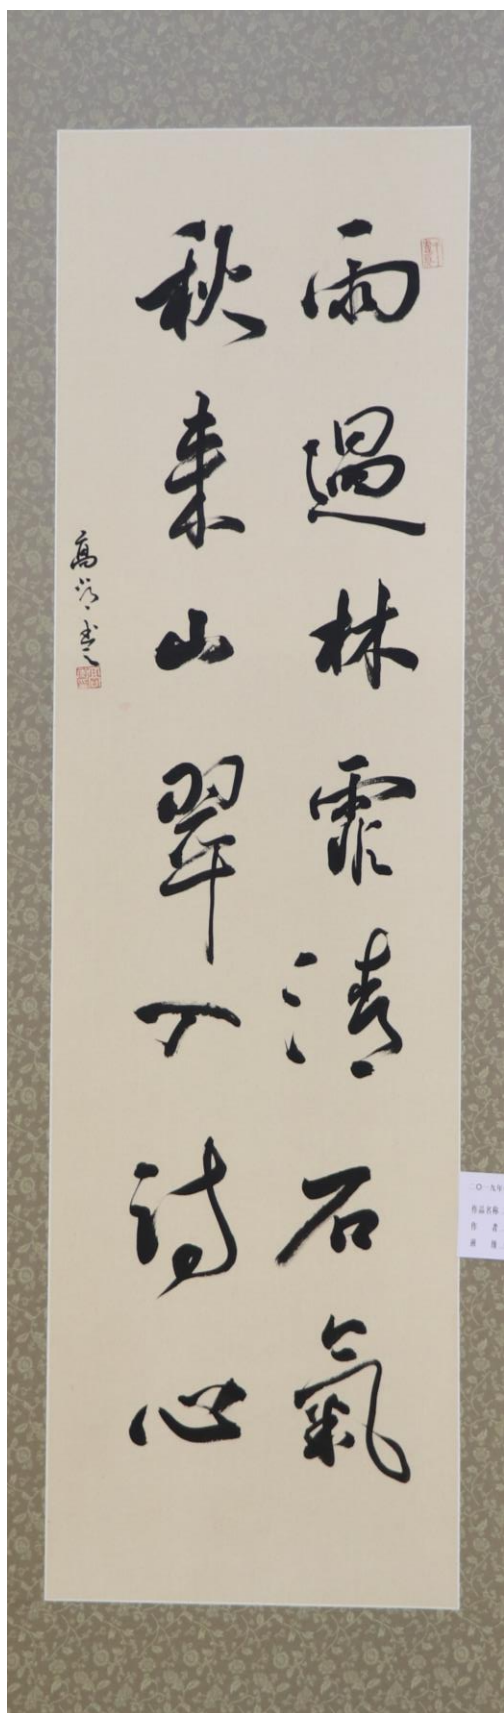 雨過林霏清石氣
秋来山翠入詩心
高
二〇一九年
作品名稱:
作　者